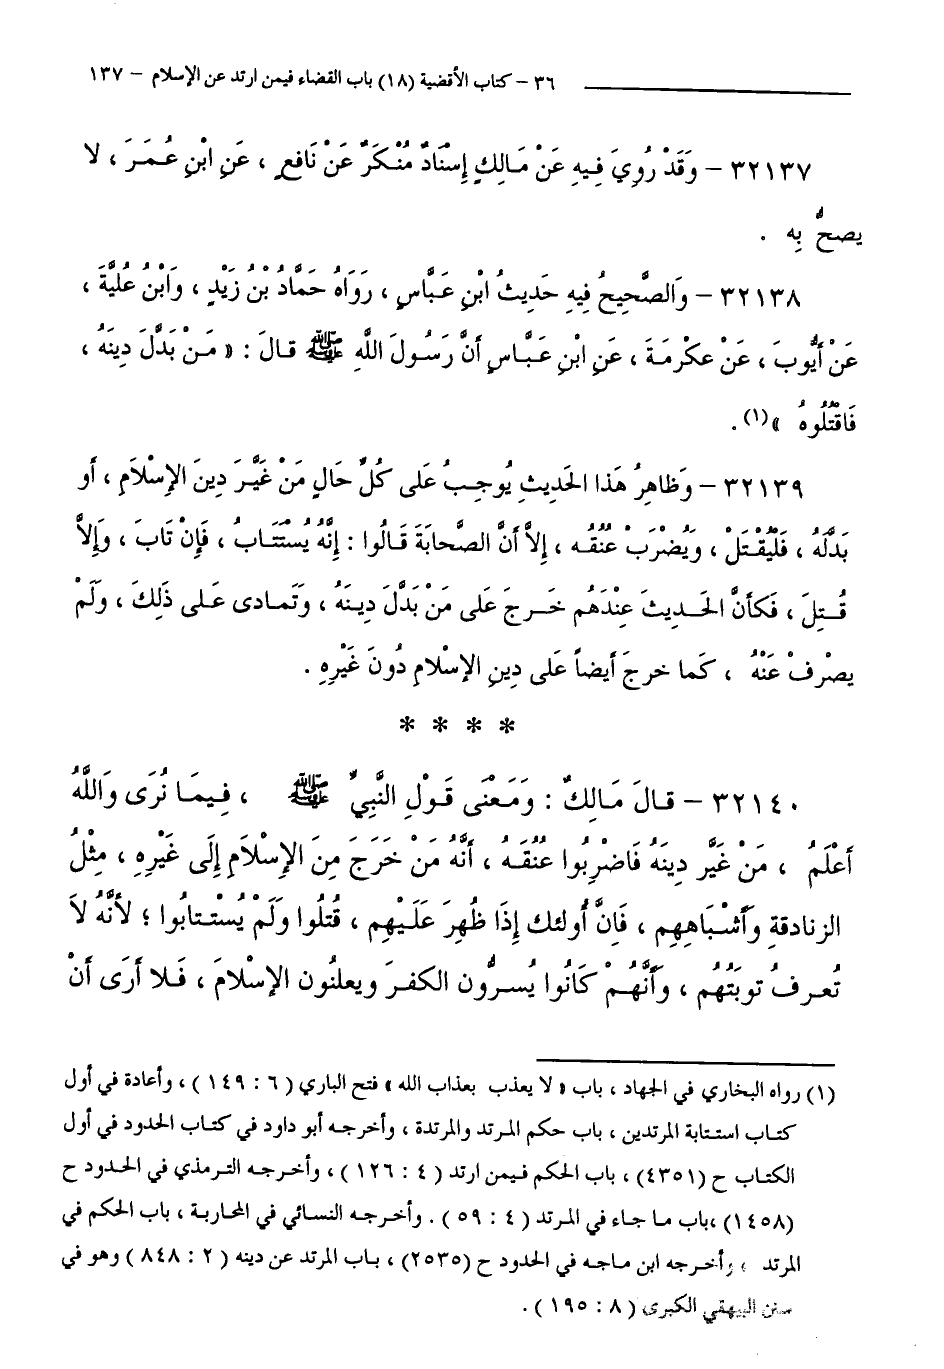 ٣٦ – كتاب الأقضية (١٨) باب القضاء فيمن ارتد عن الإسلام – ١٣٧
٣٢١٣٧ – وَقَدْ رُوِيَ فِيهِ عَنْ مَالِكٍ إِسْنَادٌ مُنْكَرٌ عَنْ نَافِعٍ ، عَنِ ابْنِ عُمَرَ ، لا
يصحُّ بِه .
٣٢١٣٨ – وَالصَّحِيحُ فِيهِ حَدِيثُ ابْنِ عَبَّاسٍ ، رَوَاهُ حَمَّادُ بْنُ زَيْدٍ ، وَابْنُ عُلَيَّةَ ،
عَنْ أَيُّوبَ ، عَنْ عكْرمَةَ ، عَنِ ابْنِ عَبَّاسٍ أَنَّ رَسُولَ اللَّهِ ﷺ قالَ : « مَنْ بَدَّلَ دِينَهُ ،
فَاقْتُلُوهُ »(١).
٣٢١٣٩ – وَظَاهِرُ هَذا الحَديثِ يُوجِبُ عَلى كُلِّ حَالٍ مَنْ غَيَّرَ دِينَ الإِسْلاَمِ ، أو
بَدَّلَهُ ، فَلْيُقْتَلْ ، وَيُضْرَبْ عُنُقُه ، إِلاَّ أَنَّ الصَّحَابَةَ قَالُوا : إِنَّهُ يُسْتَتَابُ ، فَإِنْ تَابَ ، وَإِلاَّ
قُتِلَ ، فَكأَنَّ الحَديثَ عِنْدَهُم خَرجَ عَلى مَنْ بَدَّلَ دِينَهُ ، وَتَمادى عَلى ذَلِكَ ، وَلَمْ
يصْرفْ عَنْهُ ، كَما خرجَ أيضاً عَلى دِينِ الإسْلامِ دُونَ غَيْرِهِ .
* * * *
٣٢١٤٠ – قالَ مَالِكٌ : وَمَعْنَى قَوْلِ النَّبِيِّ ﷺ ، فِيمَا نُرَى وَاللَّهُ
أعْلَمُ ، مَنْ غَيَّر دِينَهُ فَاضْرِبُوا عنُقَهُ ، أنَّهُ مَنْ خَرَجَ مِنَ الإِسْلاَمِ إِلَى غَيْرِهِ ، مِثْلُ
الزنادقةِ وَأَشْبَاهِهِم ، فَإِنَّ أُولئك إِذَا ظُهِرَ عَلَيْهِم ، قُتِلُوا وَلَمْ يُسْتتابُوا ؛ لأنَّهُ لاَ
تُعرفُ توبَتُهُم ، وأنَّهُمْ كَانُوا يُسرُّون الكفرَ ويعلنُون الإسْلامَ ، فَلا أرَى أنْ
(١) رواه البخاري في الجهاد ، باب « لا يعذب بعذاب الله » فتح الباري ( ٦ : ١٤٩ ) ، وأعادة في أول
كتاب استتابة المرتدين ، باب حكم المرتد والمرتدة ، وأخرجه أبو داود في كتاب الحدود في أول
الكتاب ح (٤٣٥١) ، باب الحكم فيمن ارتد ( ٤ : ١٢٦ ) ، وأخرجه الترمذي في الحدود ح
(١٤٥٨) ،باب ما جاء في المرتد ( ٤ : ٥٩ ) . وأخرجه النسائي في المحاربة ، باب الحكم في
المرتد ، وأخرجه ابن ماجه في الحدود ح (٢٥٣٥) ، باب المرتد عن دينه ( ٢ : ٨٤٨ ) وهو في
سنن البيهقي الكبرى ( ٨ : ١٩٥ ) .